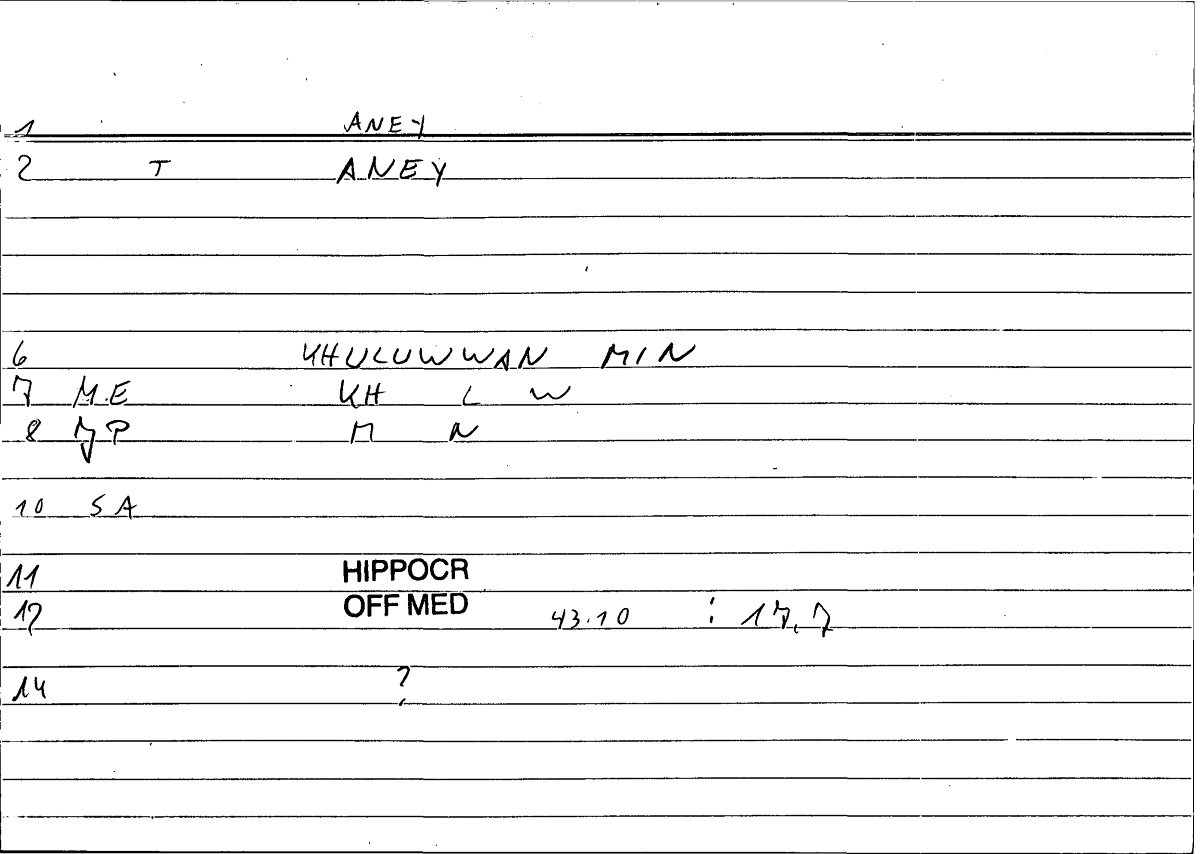 1 ANEY
2 T ANEY
6 KHULUWWAN MIN
7 M.E KH L W
8 P M N
10 SA
11 HIPPOCR
12 OFF MED 43.10 : 17,7
14 ?